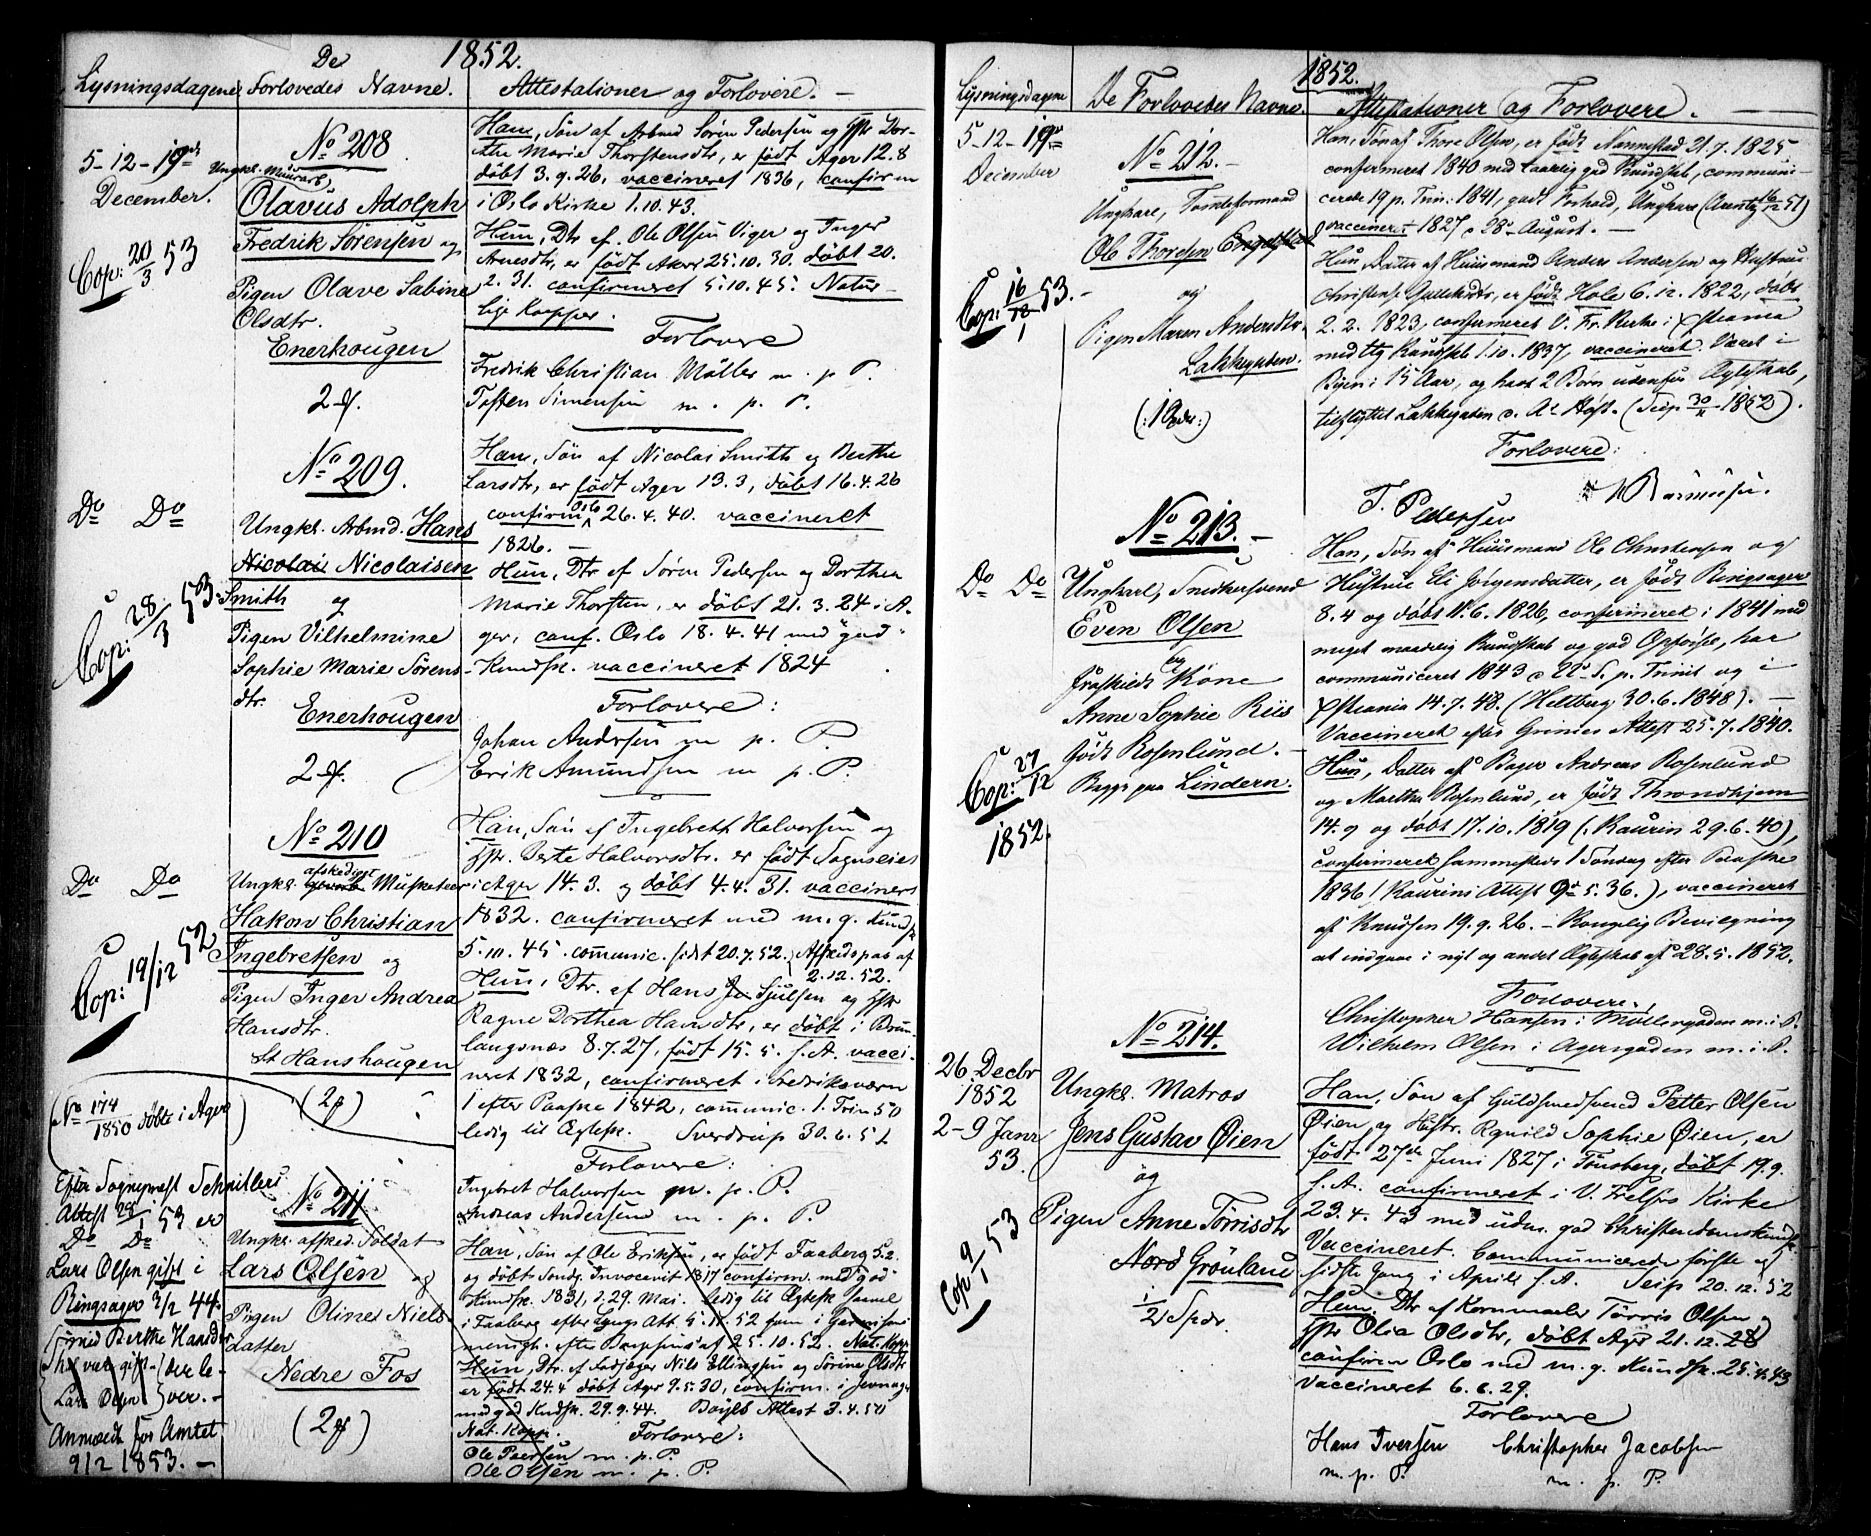 1852.
De
Lysningsdagene Forlovedes Navne. Attestationer og Forlovere. —
5-12-19de
December.
Cop: 20/3 53
No 208
Ungkl. Muurarb.
Olavus Adolph
Fredrik Sörensen og
Pigen Olave Sabine
Olsdtr.
Enerhougen
Han, Sön af Arbmd Sören Pedersen og Hstr Dor-
the Marie Thorstensdtr, er födt Ager 12.8
döbt 3.9.26, vaccineret 1836, confirm
i Oslo Kirke 1.10.43.
Hun, Dtr af Ole Olsen Viger og Inger
Arnesdtr, er födt Aker 25.10.30. döbt 20.
2.31. confirmeret 5.10.45. Natur-
lige Kopper.
Forlovere
Fredrik Christian Möller m. p. P.
Tosten Simensen m. p. P.
Do Do
Cop: 28/3 53.
No 209.
Ungkl. Arbmd. Hans
Nicolai Nicolaisen
Smith og
Pigen Vilhelmine
Sophie Marie Sörens
dtr.
Enerhougen
Han, Sön af Nicolai Smith og Berthe
Larsdtr, er födt Ager 13.3, döbt 16.4.26
confirm Oslo 26.4.40. vaccineret
1826. —
Hun, Dtr af Sören Pedersen og Dorthea
Marie Thorsten, er döbt 21.3.24 i A-
ger, conf. Oslo 18.4.41 med "god"
Kundsk. vaccineret 1824
Forlovere:
Johan Andersen m. p. P.
Erik Amundsen m. p. P.
Do Do
Cop: 19/12 52
No 210
afskediget
Ungkl. Musketeer
Hakon Christian
Ingebretsen og
Pigen Inger Andrea
Hansdtr.
St Hanshougen
(No 174/1850 döbte i Ager)
Han, Sön af Ingebrett Halvorsen og
Hstr. Berte Halvorsdtr. er födt Sognseiet
i Ager 14.3. og döbt 4.4.31. vaccineres
1832. confirmeret med m. g. Kundsk
5.10.45. communic. sidst 20.7.52. (Afskedspas af
2.12.52.
Hun, Dtr. af Hans Sjulsen og Hstr
Ragne Dorthea Havndtr, er döbt i Brun-
langsnæs 8.7.27, födt 15.5. s.A. vacci-
neret 1832, confirmeret i Fredriksværn
1 efter Paaske 1842, communic. 1. Trin 50
ledig til Ægtesk. Sverdrup 30.6.52
Forlovere:
Ingebret Halvorsen m. p. P.
Andreas Andersen m. p. P.
Efter Sogneprest Schnitlers
Attest 28/1 53 er
Do Do
Lars Olsen gift i
Ringsager 3/2 44.
med Berthe Hansdtr
Anmeldt for Amtet
9/2 1853. —
No 211
Ungkl. afsked. Soldat
Lars Olsen og
Pigen Oline Niels-
datter
Nedre Fos
Han, Sön af Ole Eriksen, er födt Faaberg 5.2.
og döbt Sond. Invocavit 1817 confirm. med "god"
Kundsk. 1831, 29. Mai. ledig til Ægtesk
Hun, Dtr. af Nils Ellingsen og Sörine Olsdtr
er födt 24.4 döbt Ager 9.5.30, confirm. i
med god Kndsk. 29.9.44. Attest 3.4.50
Nat. Kopp. Forlovere:
Ole Paersen m. p. P.
Ole Olsen m. p. P.
1852.
Lysningsdagene De Forlovedes Navne. Attestationer og Forlovere. —
5-12-19de
December
Cop: 16/1 53. —
No 212. —
Ungkarl, Tomteformand
Ole Thoresen Engelstad
og
Pigen Maren Andersdtr.
Lakkegaden.
Han, Sön af Thore Olsen, er födt Nannestad 21.7.1825
confirmeret 1840 med taarlig god Kundskb, communi-
cerede 19 p. Trin: 1841, godt Forhold, Ungkarl (Arentz 16/12 51)
vaccineret 1827 28de August. —
Hun Datter af Huusmand Anders Andersen og Hustrue
Christense Gulleksdtr, er födt Hole 6.12.1822, döbt
2.2.1823, confirmeret V. Fr. Kirke i Xstiania
med tlg Kundskb 1.10.1837, vaccineret. Været i
Byen i 15 Aar, og havt 2 Börn udenfor Ægteskab,
tilflyttet Lakkegaden Höst. (Seip 30/11 1852).
Forlovere:
T. Pedersen Rasmusen.
Do Do
Cop: 27/12
1852.
No 213. —
Ungkarl, Snedkersvend
Even Olsen
og
fraskildt Kone
Anne Sophie Riis
födt Rosenlund. —
Bagge paa Lindern.
Han, Sön af Huusmand Ole Christensen og
Hustrue Eli Jörgensdatter, er födt Ringsager
8.4 og döbt 11.6.1826, confirmeret i 1841 med
meget maadelig Kundskab og god Opförsel, har
communiceret 1843 22de S. p. Trinit og i
Xstiania 14.7.48. (Heltberg 30.6.1848). —
Vaccineret efter Grimes Attest 25.7.1840.
Hun, Datter af Bager Andreas Rosenlund
og Martha Rosenlund, er födt Throndhjem
14.9 og döbt 17.10.1819 (Kaurin 29.6.40),
confirmeret sammesteds 1 Söndag efter Paaske
1836 (Kaurins Attest 9de 5.36.), vaccineret
af Knudsen 19.9.26. — Kongelig Bevilgning
at indgaae i nyt og andet Ægteskab af 28.5.1852.
Forlovere.
Christopher Hansen i Möllergaden m. i. P.
Wilhelm Olsen i Agersgaden m. i. P.
26 Decbr
1852
2-9 Janr
53.
Cop 9/1 53
No 214.
Ungkl. Matros
Jens Gustav Öien
og
Pigen Anne Törrisdtr
Nord Grönland
1/2 Spdr.
Han, Sön af Guldsmedsvend Petter Olsen
Öien, og Hustr. Rgnild Sophie Öien, er
födt 27de Juni 1827 i Tönsberg, döbt 19.9.
s. A. confirmeret i V. Frelsers Kirke
23.4.43 med udm. god Christendomskundsk.
Vaccineret. Communicerede förste og
sidste Gang i April s. A. Seip 20.12.52
Hun. Dtr. af Kornmaaler Törris Olsen og
Hstr Olia Olsdtr, döbt Ager 21.12.28
confirm Oslo med m. g. Kundsk. 25.4.43
vaccineret 6.6.29.
Forlovere
Hans Iversen Christopher Jacobsen
m. p. P. m. p. P.